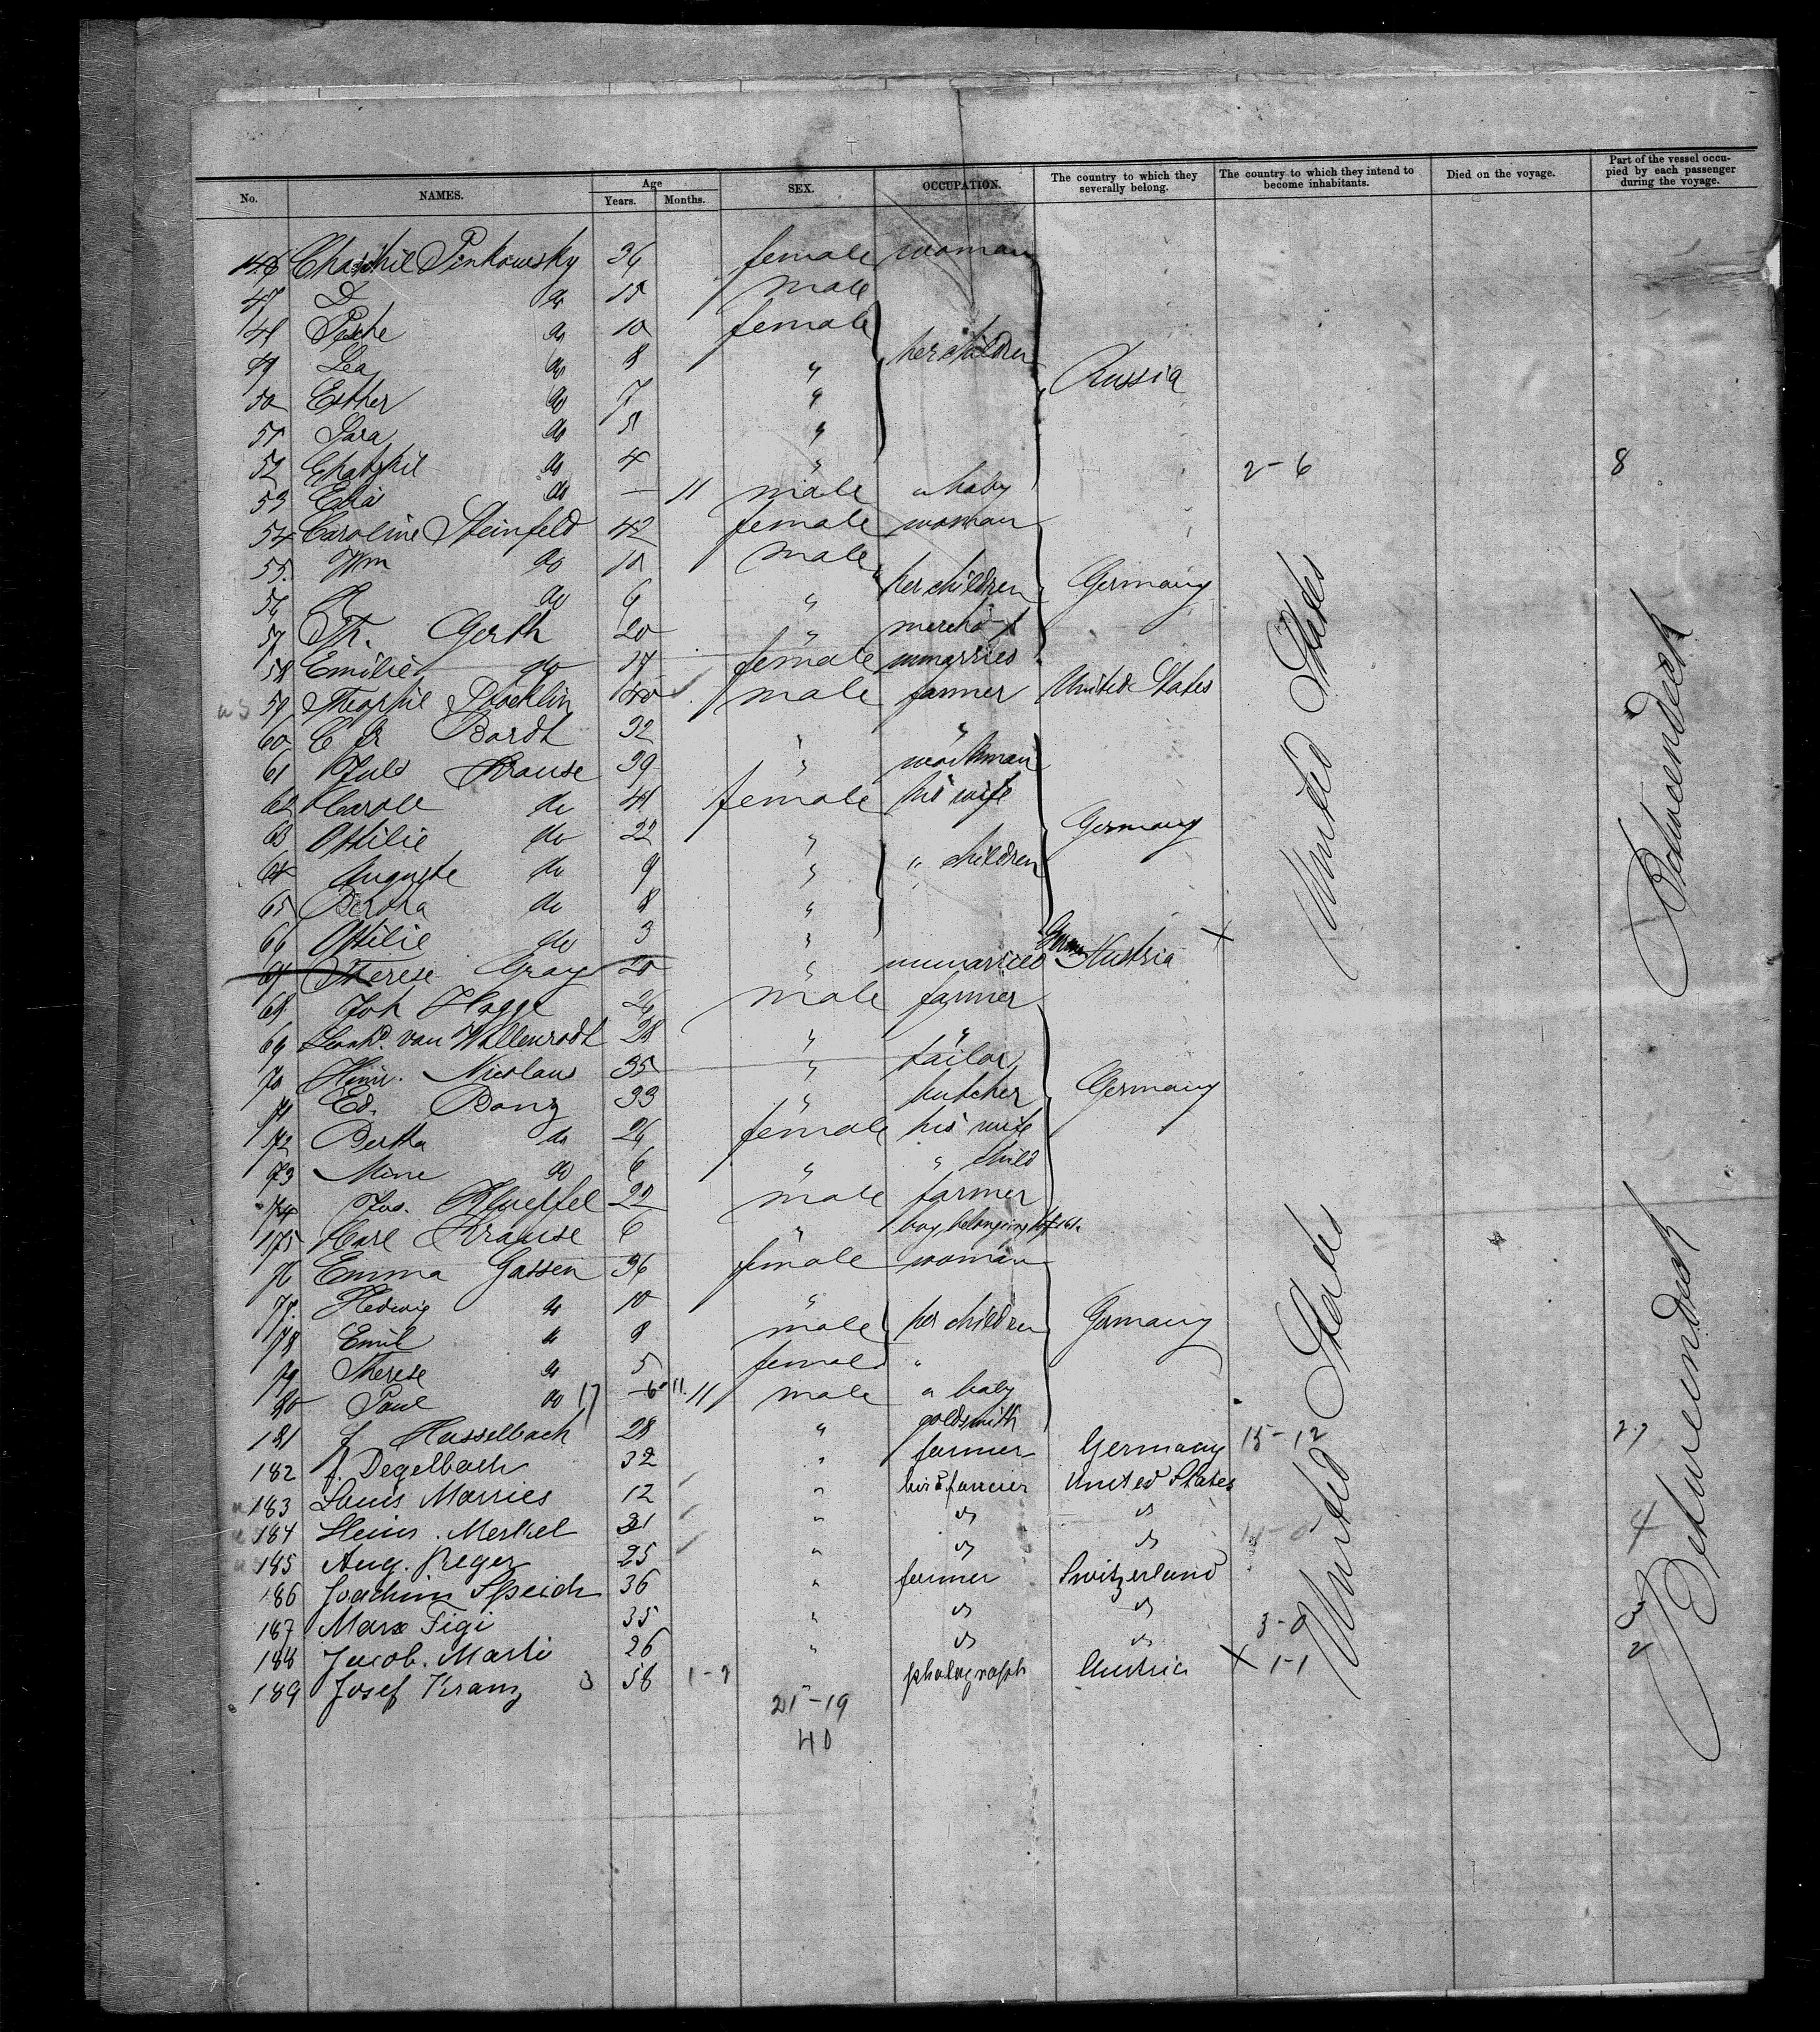 No. NAMES. Age Years. Months. SEX. OCCUPATION. The country to which they severally belong. The country to which they intend to become inhabitants. Died on the voyage. Part of the vessel occupied by each passenger during the voyage.
146 Pinkowsky 34 female woman
47 do 15 male
48 Pesche do 10 female
49 Lea do 8 " her children
50 Esther do 7 " Russia
51 Sara do 5 "
52 do 4 " 2-6 8
53 do — 11 male a baby
54 Caroline Steinfeld 42 female woman
55. Wm do 10 male
56 do 6 " her children Germany
57 Th. Gerth 20 " merchant
58 Emilie do 17 female unmarried
59 Theophil Stocklin 40 male farmer United States
60 Bordt 32 " "
61 Juls Krause 39 " workman
62 Karole do 41 female his wife
63 Ottilie do 22 " Germany
64 Auguste do 9 " " children
65 Bertha do 8 "
66 Ottilie do 3 "
67 Therese Gray 20 " unmarried Austria X
68 Joh Hagge 24 male farmer
69 van Wallenrodt 28 " "
70 Heinr. Nicolaus 35 " tailor
71 Ed. Bonz 33 " butcher Germany
72 Bertha do 24 female his wife
73 Mine do 6 " " child
74 Jos. 22 male farmer
175 Karl Krause 6 " boy, belonging to
76 Emma Gassen 36 female woman
77. Hedwig do 10 "
78 Emil do 8 male her children Germany
79 Therese do 5 female "
80 Paul do 17 11. 11 male a baby
181 J Hasselbach 28 " goldsmith
182 J. Degelbach 32 " farmer Germany 15-12 27
183 Louis Marries 12 " bird fancier United States
184 Heinr. Merkel 31 " do do
185 Aug. Reger 25 " do do 4
186 Joachim Speich 36 " farmer Switzerland
187 Marx Figi 35 " do do
188 Jacob. Marti 26 " do do 3-0
189 Josef Kranz 3 58 1-2 photograph Austria X 1-1
21-19
40
United States
United States
United States
Betweendeck
Betweendeck